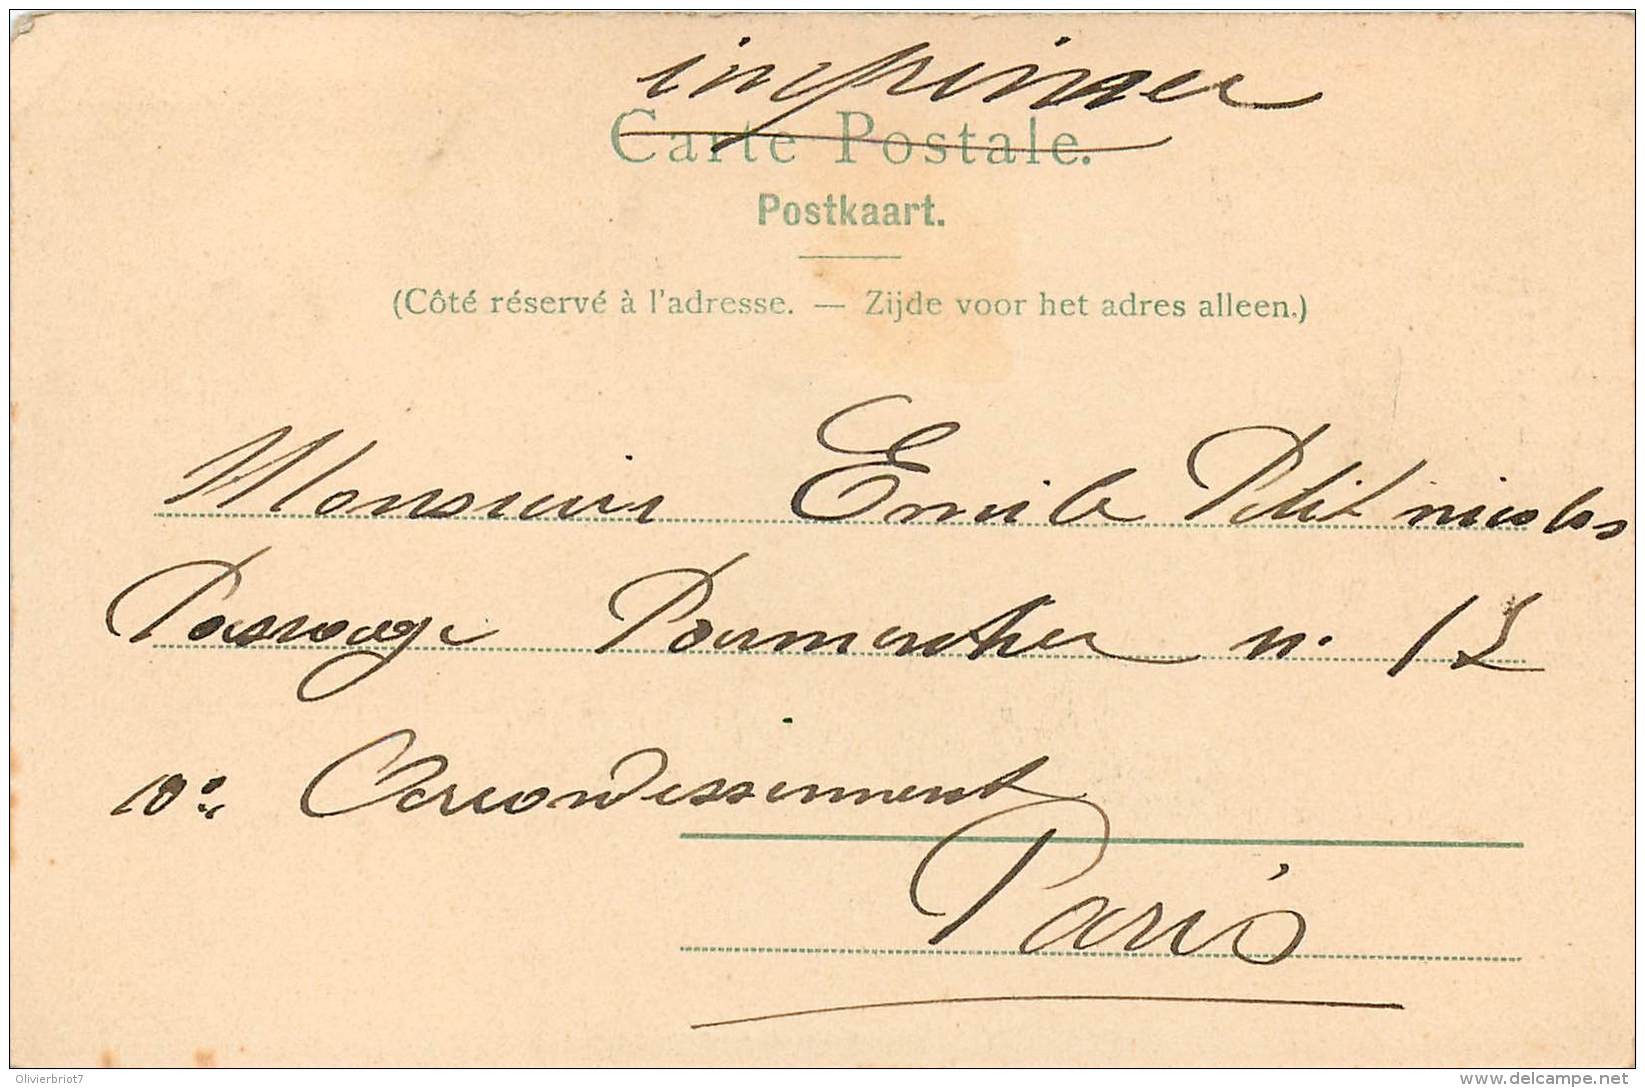 imprimer
Carte Postale.
Postkaart.
(Côté réservé à l'adresse. — Zijde voor het adres alleen.)
Monsieur Emile Petitnicolas
Passage Parmentier n. 12
10e Arrondissement
Paris
Olivierbriot7
delcampe.net